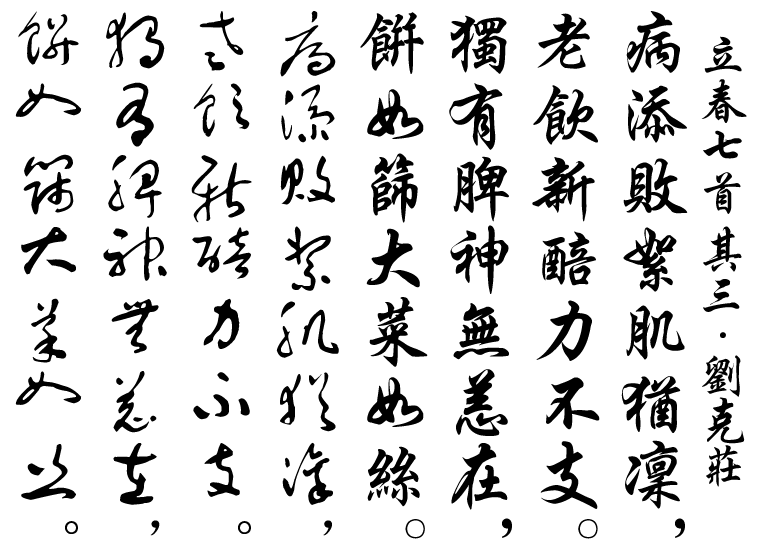 立春七首 其三·劉克莊
病添敗絮肌猶凜，
老飲新醅力不支。
獨有脾神無恙在，
餅如篩大菜如絲。
病添敗絮肌猶凜，
老飲新醅力不支。
獨有脾神無恙在，
餅如篩大菜如絲。